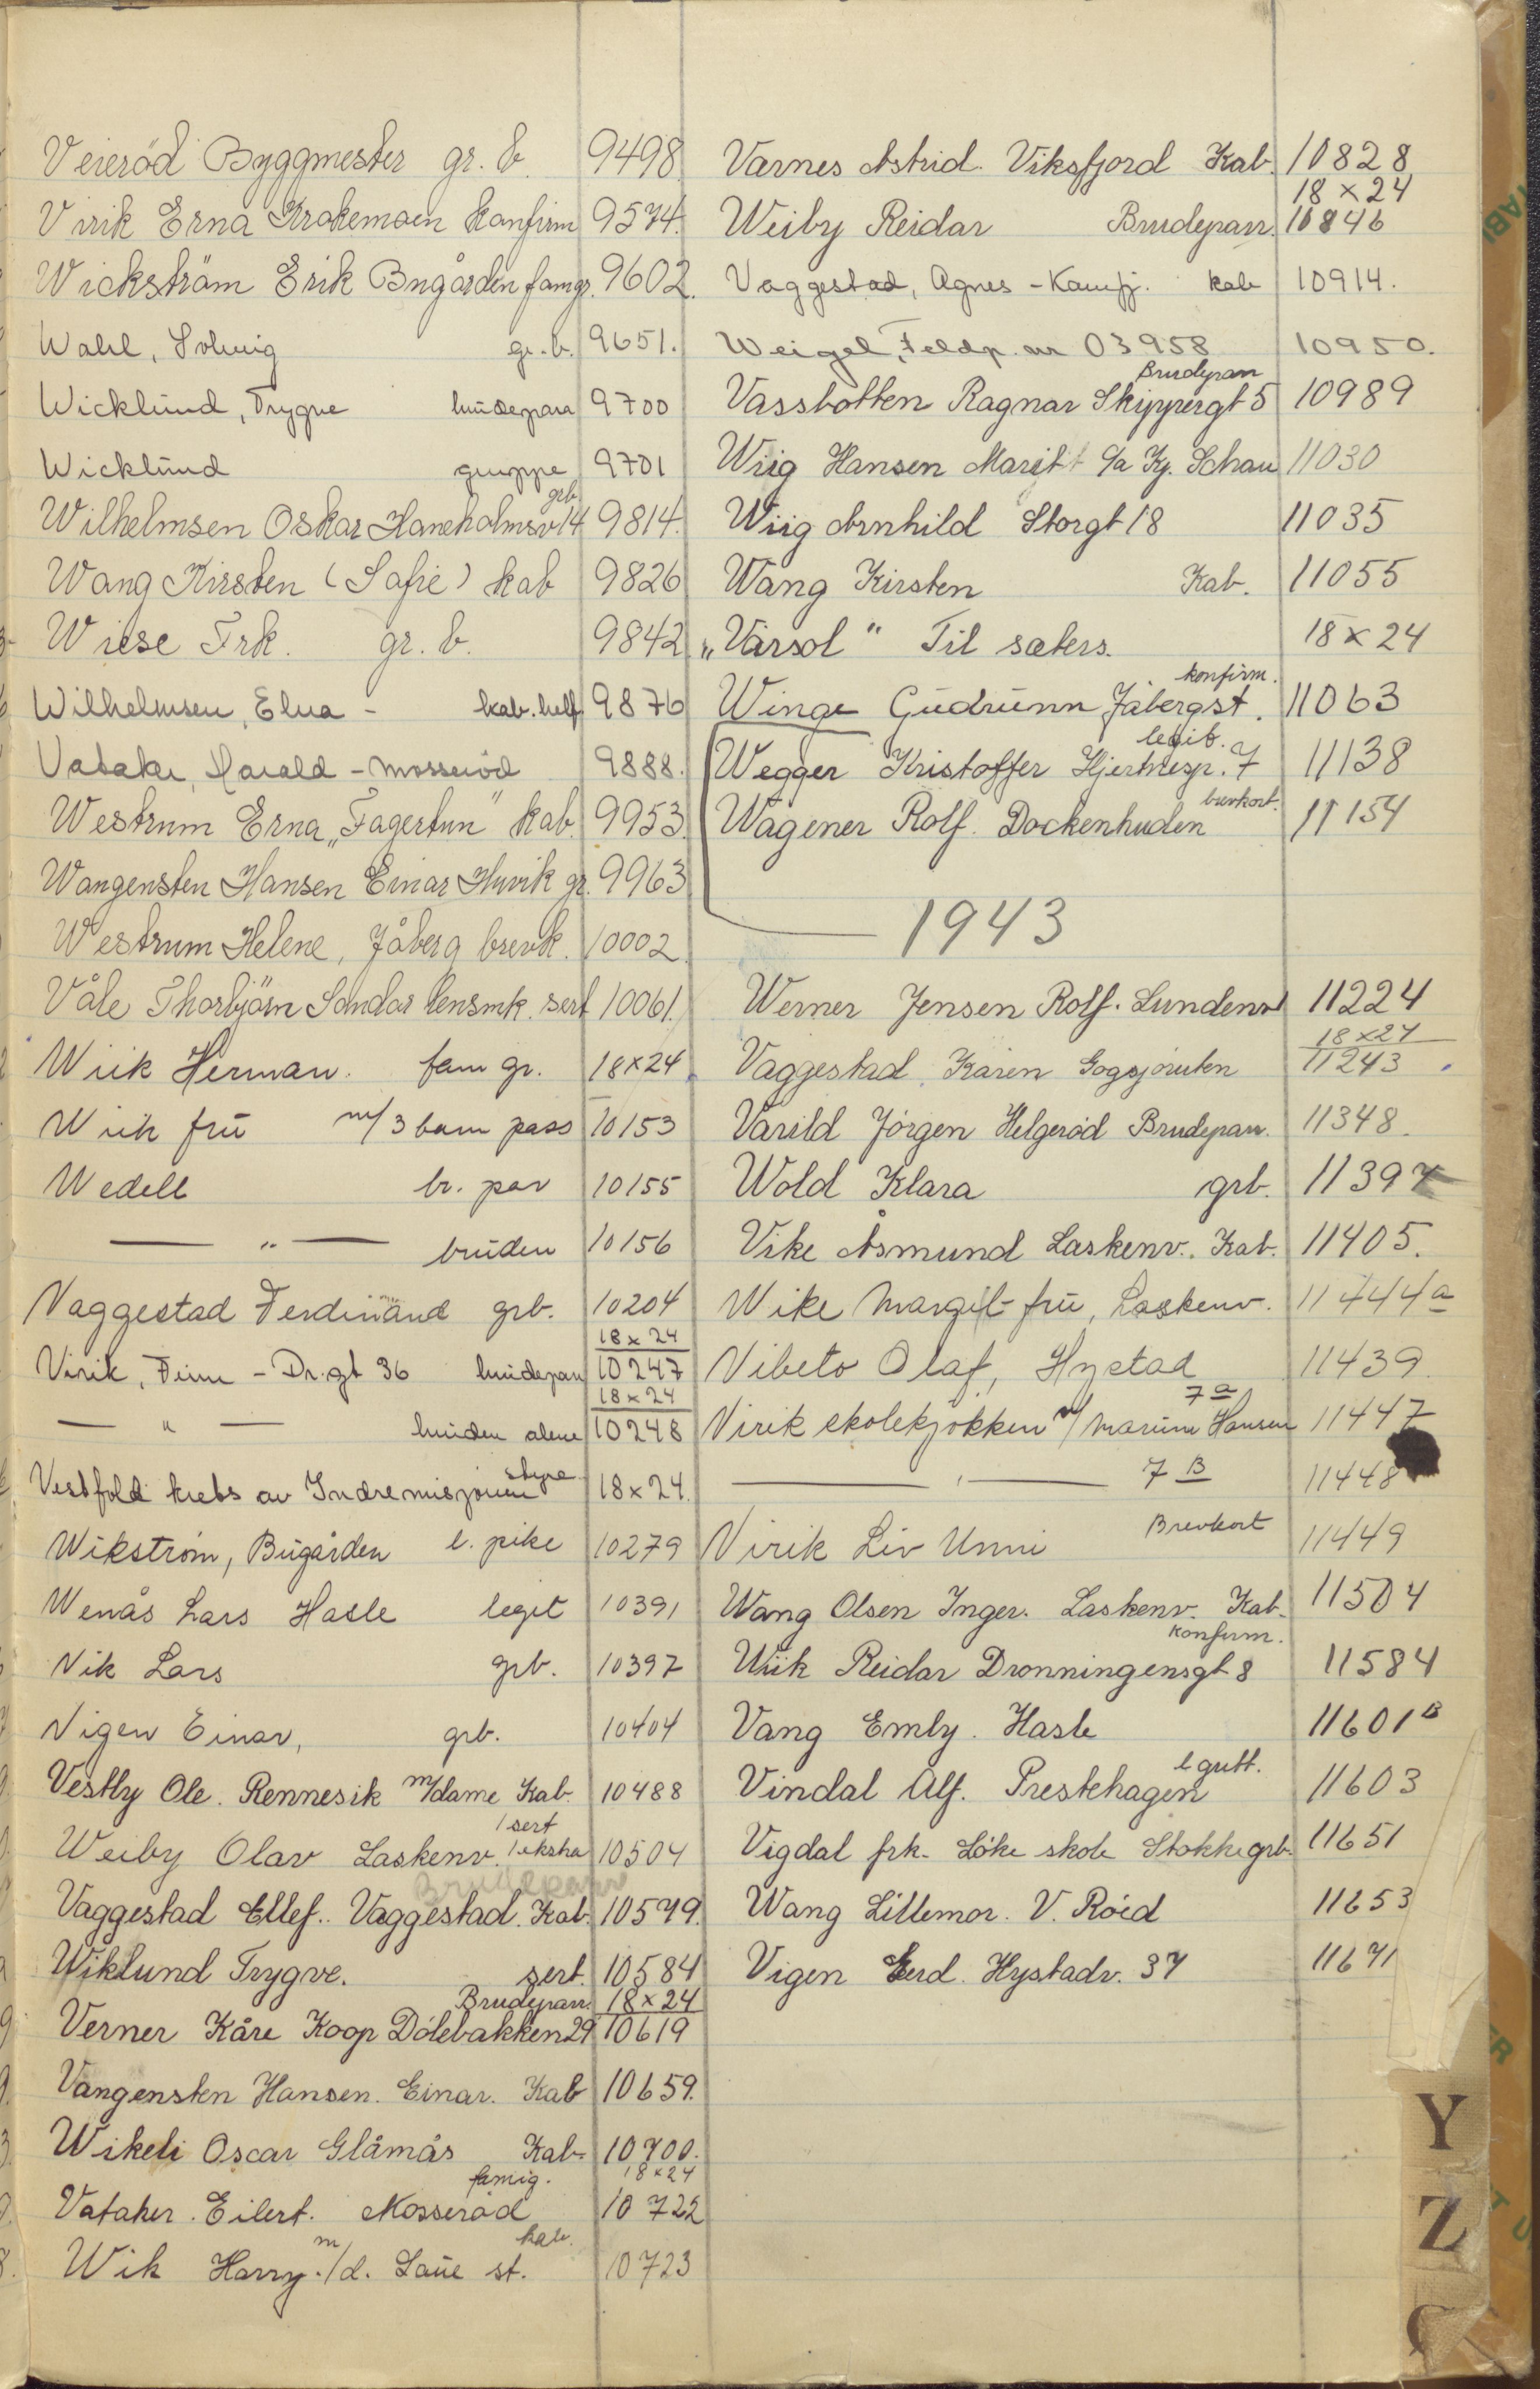 Veieröd Byggmester gr. b. 9498
Virik Erna Krokemoen konfirm 9574.
Wickström Erik Bugården famgr. 9602.
Wahl, Solveig gr. b. 9651.
Wicklund, Trygve brudepar 9700
Wicklund gruppe 9701
grb
Wilhelmsen Oskar Haneholmsv 14 9814.
Wang Kirsten (Safie) kab 9826
Wiese Frk. gr. b. 9842
Wilhelmsen, Elna - kab. helf 9876
Vataker, Harald - Mosseröd 9888.
Westrum Erna „Fagertun" kab. 9953
Wangensten Hansen Einar Huvik gr. 9963
Westrum Helene, Jåberg brevk. 10002
Våle Thorbjörn Sandar lensmk. sert 10061.
Wiik Herman. fam gr. 18x24
Wiik frü m/3 barn pass 10153
Wedell br. par 10155
— " — brüden 10156
Vaggestad Ferdinand grb. 10204
18x24
Virik, Finn - Dr.gt 36 brüdepar 10247
18x24
— " — brüden alene 10248
styre
Vestfold krets av Indremisjonen 18x24.
Wikstrøm, Bügården l. pike 10279
Wenås Lars Hasle legit 10391
Vik Lars grb. 10397
Vigen Einar, grb. 10404
Vestly Ole. Rennesik m/dame Kab. 10488
1 sert
Weiby Olav Laskenv. 1 ekstra 10504
Brudepar
Vaggestad Ellef.. Vaggestad. Kab. 10579.
Wiklund Trygve. sert. 10584
Brudeparr. 18x24
Verner Kåre Koop Dölebakken 29 10619
Vangensten Hansen. Einar. Kab 10659.
Wikeli Oscar Glåmås Kab. 10700.
famig. 18x24
Vataker. Eilert. Mosseröd 10722
kab.
Wik Harry. m/d. Laüe st. 10723
Varnes Astrid. Viksfjord Kab. 10828
18x24
Weiby Reidar Brudeparr. 10846
Vaggestad, Agnes - Kamfj. kab 10914.
Weigel, Feldp. nr 03958 10950.
Brudeparr
Vassbotten Ragnar Skippergt 5 10989
Wiig Hansen Marit c/a Fy. Schau 11030
Wiig Arnhild Storgt 18 11035
Wang Kirsten Kab. 11055
„Vårsol" Til sæters. 18x24
konfirm.
Winge Güdrünn Jåbergst. 11063
legit.
Wegger Kristoffer Hjertnespr. 7 11138
brevkort.
Wagener Rolf. Dockenhuden 11154
1943
Werner Jensen Rolf. Lundenv 11224
18x24
Vaggestad, Karen Gogsjøruten 11243
Varild Jørgen Helgerød Brudeparr. 11348.
Wold Klara grb. 11397
Vike Åsmund Laskenv.. Kab. 11405.
Wike Margit frü, Laskenv. 11444a
Vibeto Olaf, Hystad 11439
7 a
Virik skolekjøkken v/ Marüm Hansen 11447
— " — 7 B 11448
Virik Liv Unni Brevkort 11449
Wang Olsen Inger. Laskenv. Kab. 11504
konfirm.
Wiik Reidar Dronningensgt 8 11584
Vang Emly. Hasle 11601 B
l gutt.
Vindal Alf. Prestehagen 11603
Vigdal frk. Löke skole Stokke grb. 11651
Wang Lillemor. V. Röed 11653
Vigen Gerd. Hystadv. 37 11671
Y
Z